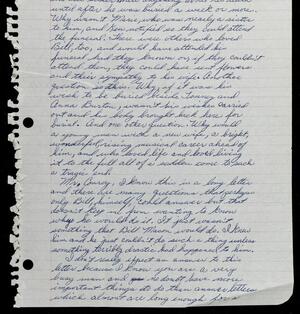 until after he was buried a week or more.
Why wasn't Marie, who was nearly a sister
to him, and Ken notified so they could attend
the funeral? There were others who loved
Bill, too, and would have attended his
funeral had they known or, if they couldn't
attend them, they could have sent flowers
and their sympathy to his wife. Another
question bothers. Why, if it was his
wish to be buried beside
Anna Burton, wasn't his wishes carried
out and his body brought back here for
burial. And one other question. Why would
a young man with a new wife, a bright,
wonderful, rising musical career ahead of
him, and who loved life and loved living
it to the full all of a sudden come to such
a tragic end.
Mr. I know this is a long letter
and there are many questions that perhaps
only Bill, himself, could answer but that
doesn't keep me from wanting to know
why he would do it. It just wasn't
something that Bill would do. I knew
him and he just couldn't do such a thing unless
something terribly drastic had happened to him.
I don't really expect an answer to this
letter because I know you are a very
busy man and no doubt have more
important things to do than answer letters
which almost are long enough for a